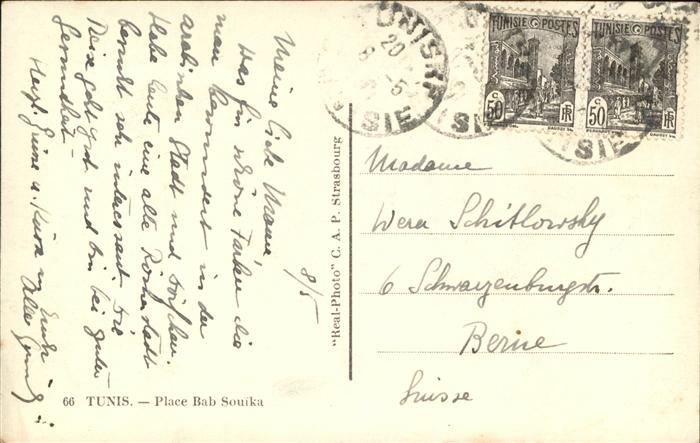 8/5
Meine liebe Mama,
Was für schöne Farben die
man bewundert in der
arabischen Stadt und Dörfchen.
Habe heute eine alte Römerstadt
besucht sehr interessant. Die
Reise geht gut und bin bei guter
Gesundheit.
Herzl. Grüsse u. Küsse an Euch
Alle
66 TUNIS. — Place Bab Souïka
"Real-Photo" C. A. P. Strasbourg
TUNISIE POSTES TUNISIE POSTES
C 50 RF C 50 RF
TUNIS
20
8 -5
SIE
SIE
SIE
Madame
Wera Schitlowsky
6 Schwarzenburgstr.
Berne
Suisse